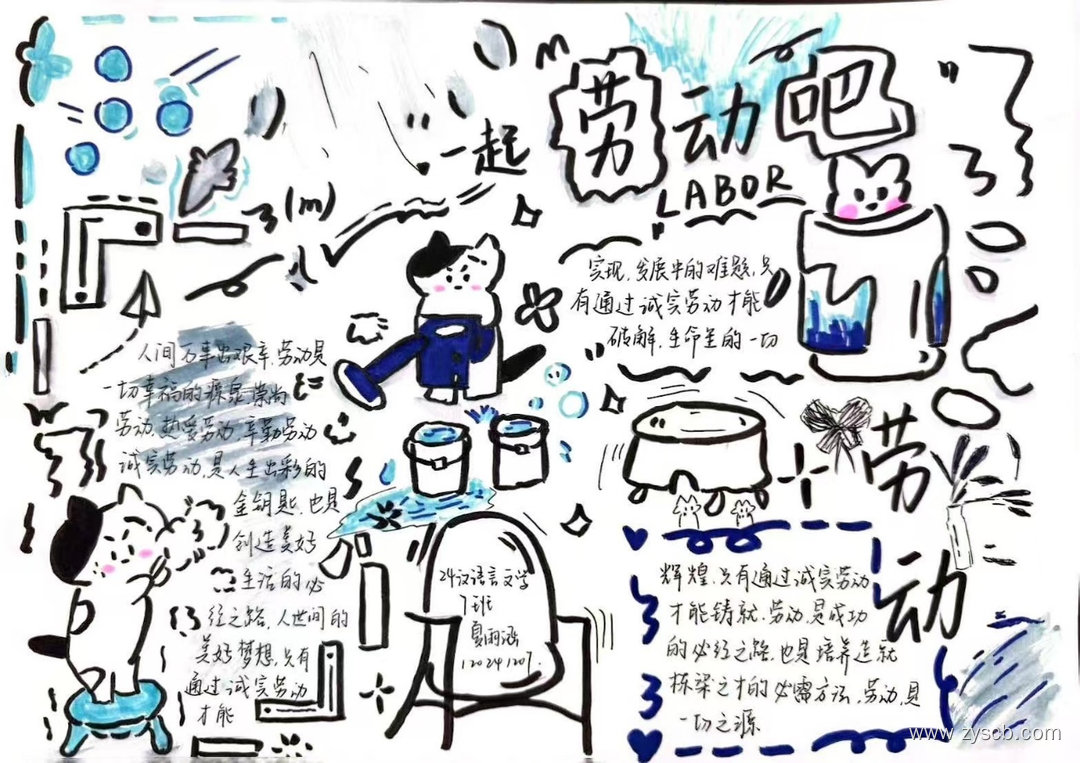 一起劳动吧
LABOR
人间万事出艰辛.劳动是
一切幸福的源泉.崇尚
劳动.热爱劳动.辛勤劳动
诚实劳动,是人生出彩的
金钥匙,也是
创造美好
生活的必
经之路,人世间的
美好梦想,只有
通过诚实劳动
才能
实现,发展中的难题,只
有通过诚实劳动才能
破解,生命里的一切
辉煌,只有通过诚实劳动
才能铸就.劳动,是成功
的必经之路,也是培养造就
栋梁之才的必需方法,劳动,是
一切之源
劳动
24汉语言文学
7班
夏雨涵
www.zyscb.com